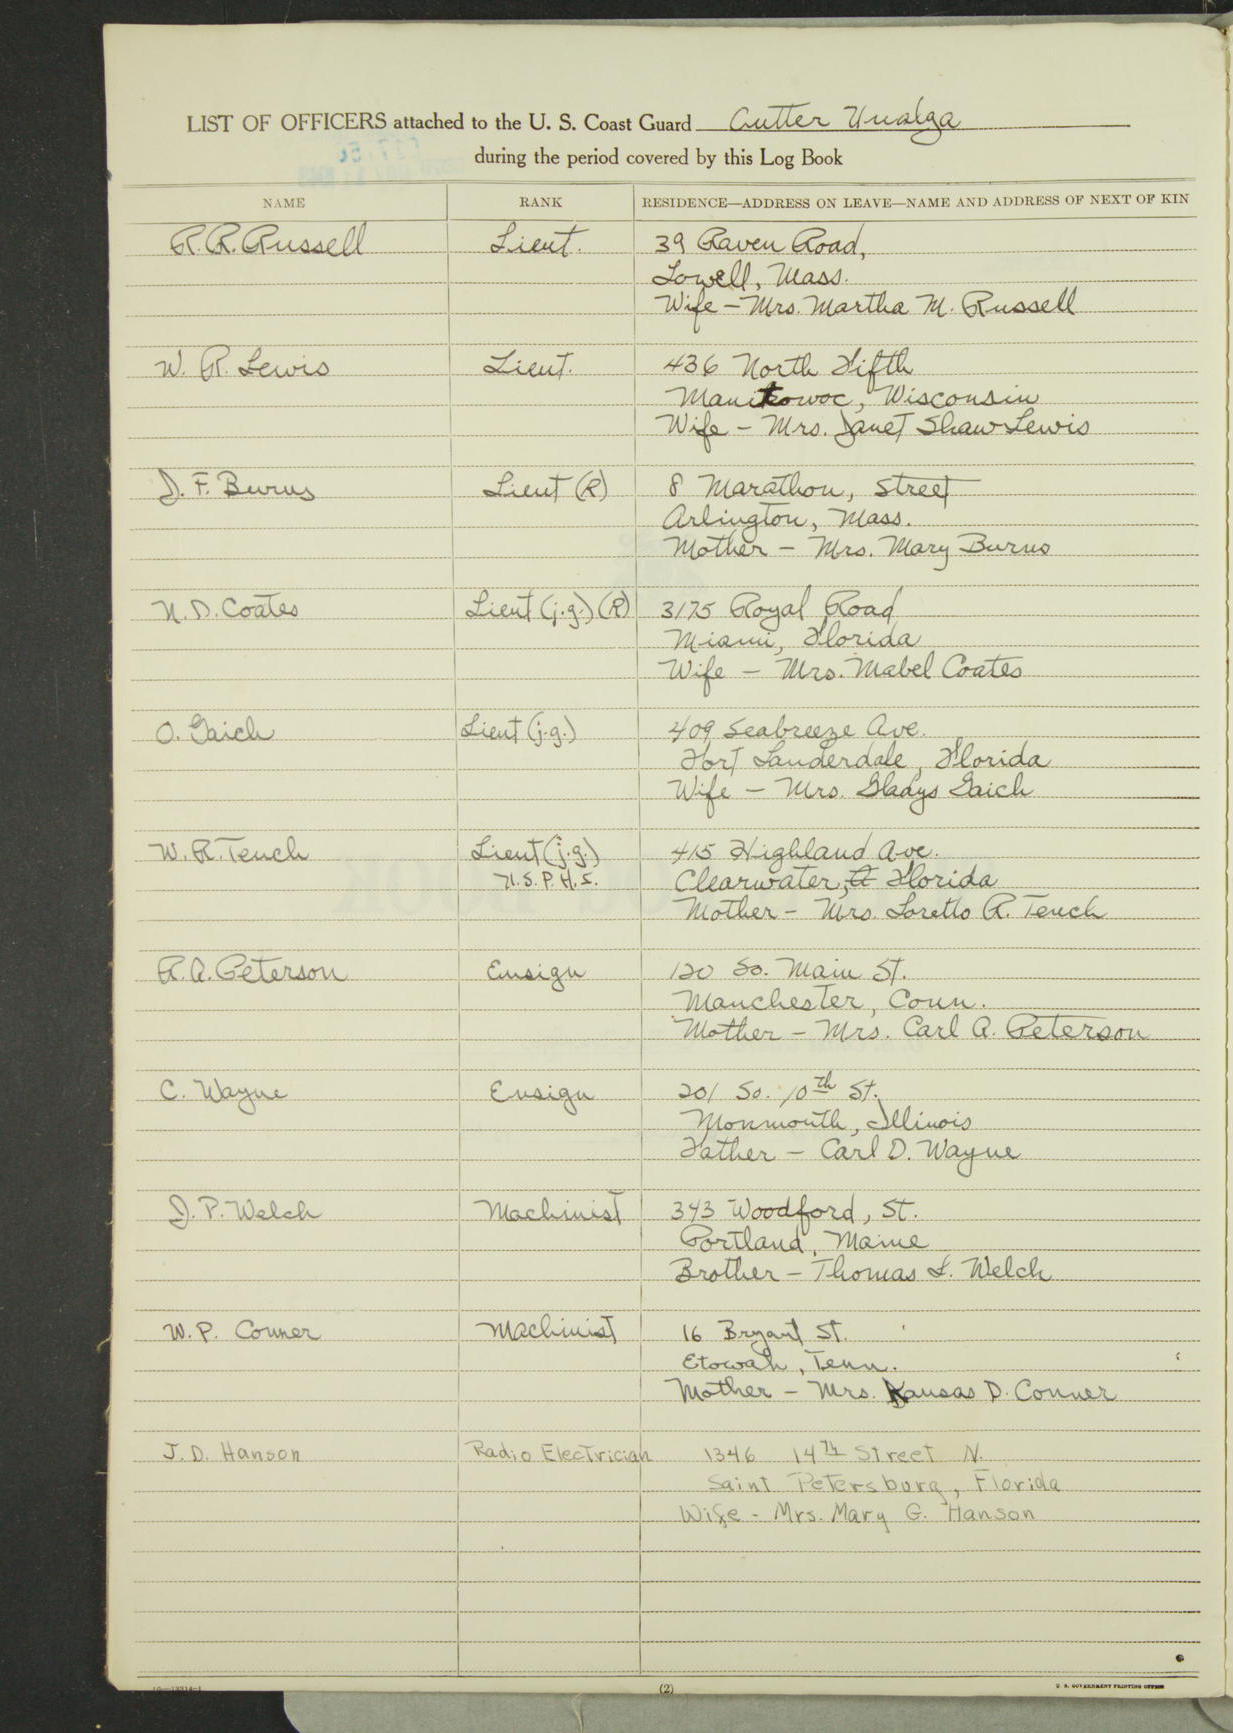 LIST OF OFFICERS attached to the U. S. Coast Guard Cutter Unalga
during the period covered by this Log Book
NAME RANK RESIDENCE—ADDRESS ON LEAVE—NAME AND ADDRESS OF NEXT OF KIN
R.R. Russell Lieut. 39 Raven Road,
Lowell, Mass.
Wife - Mrs. Martha M. Russell
W. R. Lewis Lieut. 436 North Fifth
Manitowoc, Wisconsin
Wife - Mrs. Janet Shaw Lewis
J. F. Burns Lieut (R) 8 Marathon, Street
Arlington, Mass.
Mother - Mrs. Mary Burns
N. D. Coates Lieut (j.g.) (R) 3175 Royal Road
Miami, Florida
Wife - Mrs. Mabel Coates
O. Gaich Lieut (j.g.) 409 Seabreeze Ave.
Fort Lauderdale, Florida
Wife - Mrs. Gladys Gaich
W. R. Tench Lieut (j.g.) 415 Highland Ave.
U.S.P.H.S. Clearwater, Florida
Mother - Mrs. Loretto R. Tench
R. A. Peterson Ensign 120 So. Main St.
Manchester, Conn.
Mother - Mrs. Carl A. Peterson
C. Wayne Ensign 201 So. 10th St.
Monmouth, Illinois
Father - Carl D. Wayne
J. P. Welch Machinist 343 Woodford, St.
Portland, Maine
Brother - Thomas L. Welch
W. P. Conner Machinist 16 Bryant St.
Etowah, Tenn.
Mother - Mrs. Kansas D. Conner
J. D. Hanson Radio Electrician 1346 14th Street N.
Saint Petersburg, Florida
Wife - Mrs. Mary G. Hanson
(2) U. S. GOVERNMENT PRINTING OFFICE